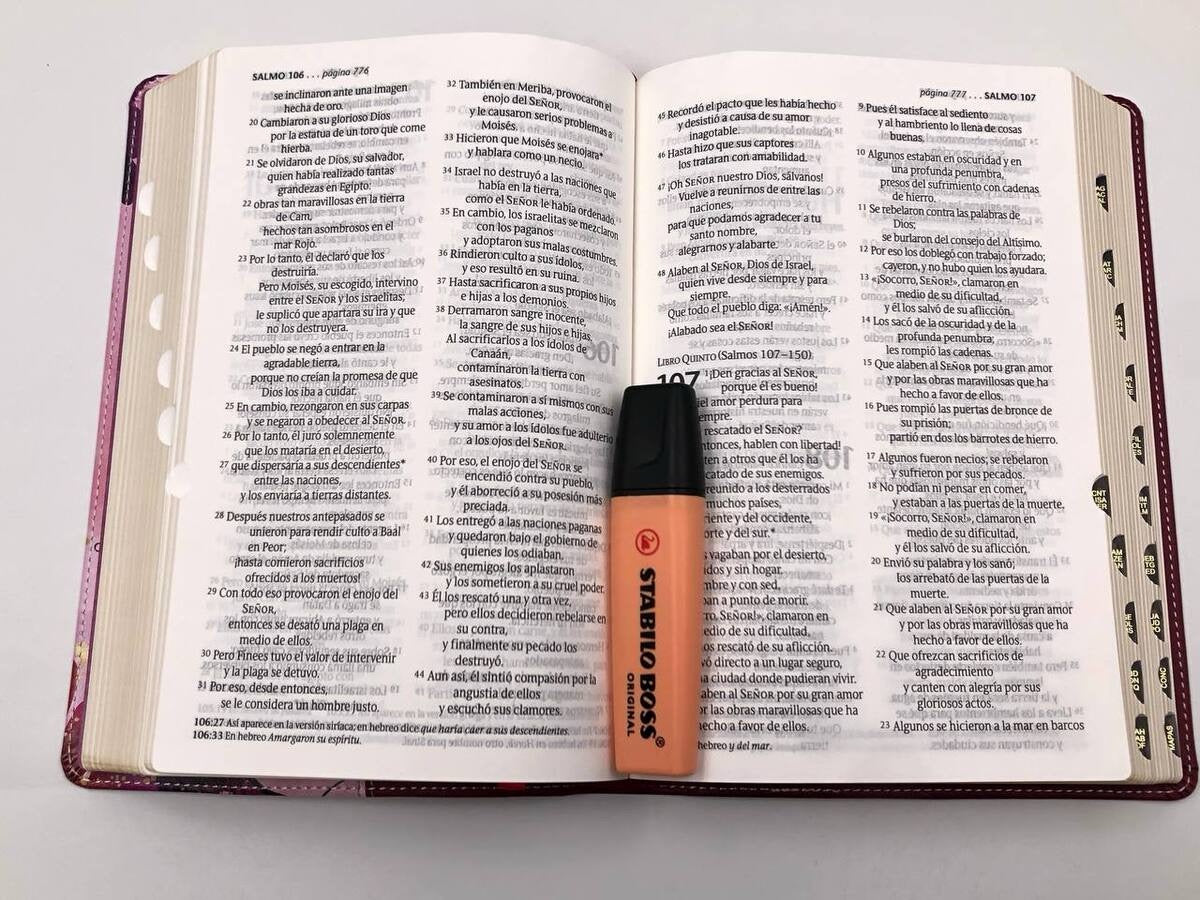 SALMO 106 . . . página 776
se inclinaron ante una imagen
hecha de oro.
20 Cambiaron a su glorioso Dios
por la estatua de un toro que come
hierba.
21 Se olvidaron de Dios, su salvador,
quien había realizado tantas
grandezas en Egipto:
22 obras tan maravillosas en la tierra
de Cam,
hechos tan asombrosos en el
mar Rojo.
23 Por lo tanto, él declaró que los
destruiría.
Pero Moisés, su escogido, intervino
entre el SEÑOR y los israelitas;
le suplicó que apartara su ira y que
no los destruyera.
24 El pueblo se negó a entrar en la
agradable tierra,
porque no creían la promesa de que
Dios los iba a cuidar.
25 En cambio, rezongaron en sus carpas
y se negaron a obedecer al SEÑOR.
26 Por lo tanto, él juró solemnemente
que los mataría en el desierto,
27 que dispersaría a sus descendientes*
entre las naciones,
y los enviaría a tierras distantes.
28 Después nuestros antepasados se
unieron para rendir culto a Baal
en Peor;
¡hasta comieron sacrificios
ofrecidos a los muertos!
29 Con todo eso provocaron el enojo del
SEÑOR,
entonces se desató una plaga en
medio de ellos.
30 Pero Finees tuvo el valor de intervenir
y la plaga se detuvo.
31 Por eso, desde entonces,
se le considera un hombre justo.
32 También en Meriba, provocaron el
enojo del SEÑOR,
y le causaron serios problemas a
Moisés.
33 Hicieron que Moisés se enojara*
y hablara como un necio.
34 Israel no destruyó a las naciones que
había en la tierra,
como el SEÑOR le había ordenado.
35 En cambio, los israelitas se mezclaron
con los paganos
y adoptaron sus malas costumbres.
36 Rindieron culto a sus ídolos,
y eso resultó en su ruina.
37 Hasta sacrificaron a sus propios hijos
e hijas a los demonios.
38 Derramaron sangre inocente,
la sangre de sus hijos e hijas.
Al sacrificarlos a los ídolos de
Canaán,
contaminaron la tierra con
asesinatos.
39 Se contaminaron a sí mismos con sus
malas acciones,
y su amor a los ídolos fue adulterio
a los ojos del SEÑOR.
40 Por eso, el enojo del SEÑOR se
encendió contra su pueblo,
y él aborreció a su posesión más
preciada.
41 Los entregó a las naciones paganas
y quedaron bajo el gobierno de
quienes los odiaban.
42 Sus enemigos los aplastaron
y los sometieron a su cruel poder.
43 Él los rescató una y otra vez,
pero ellos decidieron rebelarse en
su contra,
y finalmente su pecado los
destruyó.
44 Aun así, él sintió compasión por la
angustia de ellos
y escuchó sus clamores.
106:27 Así aparece en la versión siríaca; en hebreo dice que haría caer a sus descendientes.
106:33 En hebreo Amargaron su espíritu.
página 777 . . . SALMO 107
45 Recordó el pacto que les había hecho
y desistió a causa de su amor
inagotable.
46 Hasta hizo que sus captores
los trataran con amabilidad.
47 ¡Oh SEÑOR nuestro Dios, sálvanos!
Vuelve a reunirnos de entre las
naciones,
para que podamos agradecer a tu
santo nombre,
alegrarnos y alabarte.
48 Alaben al SEÑOR, Dios de Israel,
quien vive desde siempre y para
siempre.
Que todo el pueblo diga: «¡Amén!».
¡Alabado sea el SEÑOR!
LIBRO QUINTO (Salmos 107–150)
107 1 ¡Den gracias al SEÑOR,
porque él es bueno!
el amor perdura para
empre.
rescatado el SEÑOR?
ntonces, hablen con libertad!
ten a otros que él los ha
catado de sus enemigos.
reunido a los desterrados
muchos países,
riente y del occidente,
orte y del sur.*
s vagaban por el desierto,
dos y sin hogar.
mbre y con sed,
ban a punto de morir.
rro, SEÑOR!», clamaron en
edio de su dificultad,
rescató de su aflicción.
vó directo a un lugar seguro,
a ciudad donde pudieran vivir.
aben al SEÑOR por su gran amor
or las obras maravillosas que ha
hecho a favor de ellos.
hebreo y del mar.
9 Pues él satisface al sediento
y al hambriento lo llena de cosas
buenas.
10 Algunos estaban en oscuridad y en
una profunda penumbra,
presos del sufrimiento con cadenas
de hierro.
11 Se rebelaron contra las palabras de
Dios;
se burlaron del consejo del Altísimo.
12 Por eso los doblegó con trabajo forzado;
cayeron, y no hubo quien los ayudara.
13 «¡Socorro, SEÑOR!», clamaron en
medio de su dificultad,
y él los salvó de su aflicción.
14 Los sacó de la oscuridad y de la
profunda penumbra;
les rompió las cadenas.
15 Que alaben al SEÑOR por su gran amor
y por las obras maravillosas que ha
hecho a favor de ellos.
16 Pues rompió las puertas de bronce de
su prisión;
partió en dos los barrotes de hierro.
17 Algunos fueron necios; se rebelaron
y sufrieron por sus pecados.
18 No podían ni pensar en comer,
y estaban a las puertas de la muerte.
19 «¡Socorro, SEÑOR!», clamaron en
medio de su dificultad,
y él los salvó de su aflicción.
20 Envió su palabra y los sanó;
los arrebató de las puertas de la
muerte.
21 Que alaben al SEÑOR por su gran amor
y por las obras maravillosas que ha
hecho a favor de ellos.
22 Que ofrezcan sacrificios de
agradecimiento
y canten con alegría por sus
gloriosos actos.
23 Algunos se hicieron a la mar en barcos
STABILO BOSS®
ORIGINAL
CONC
MAPAS